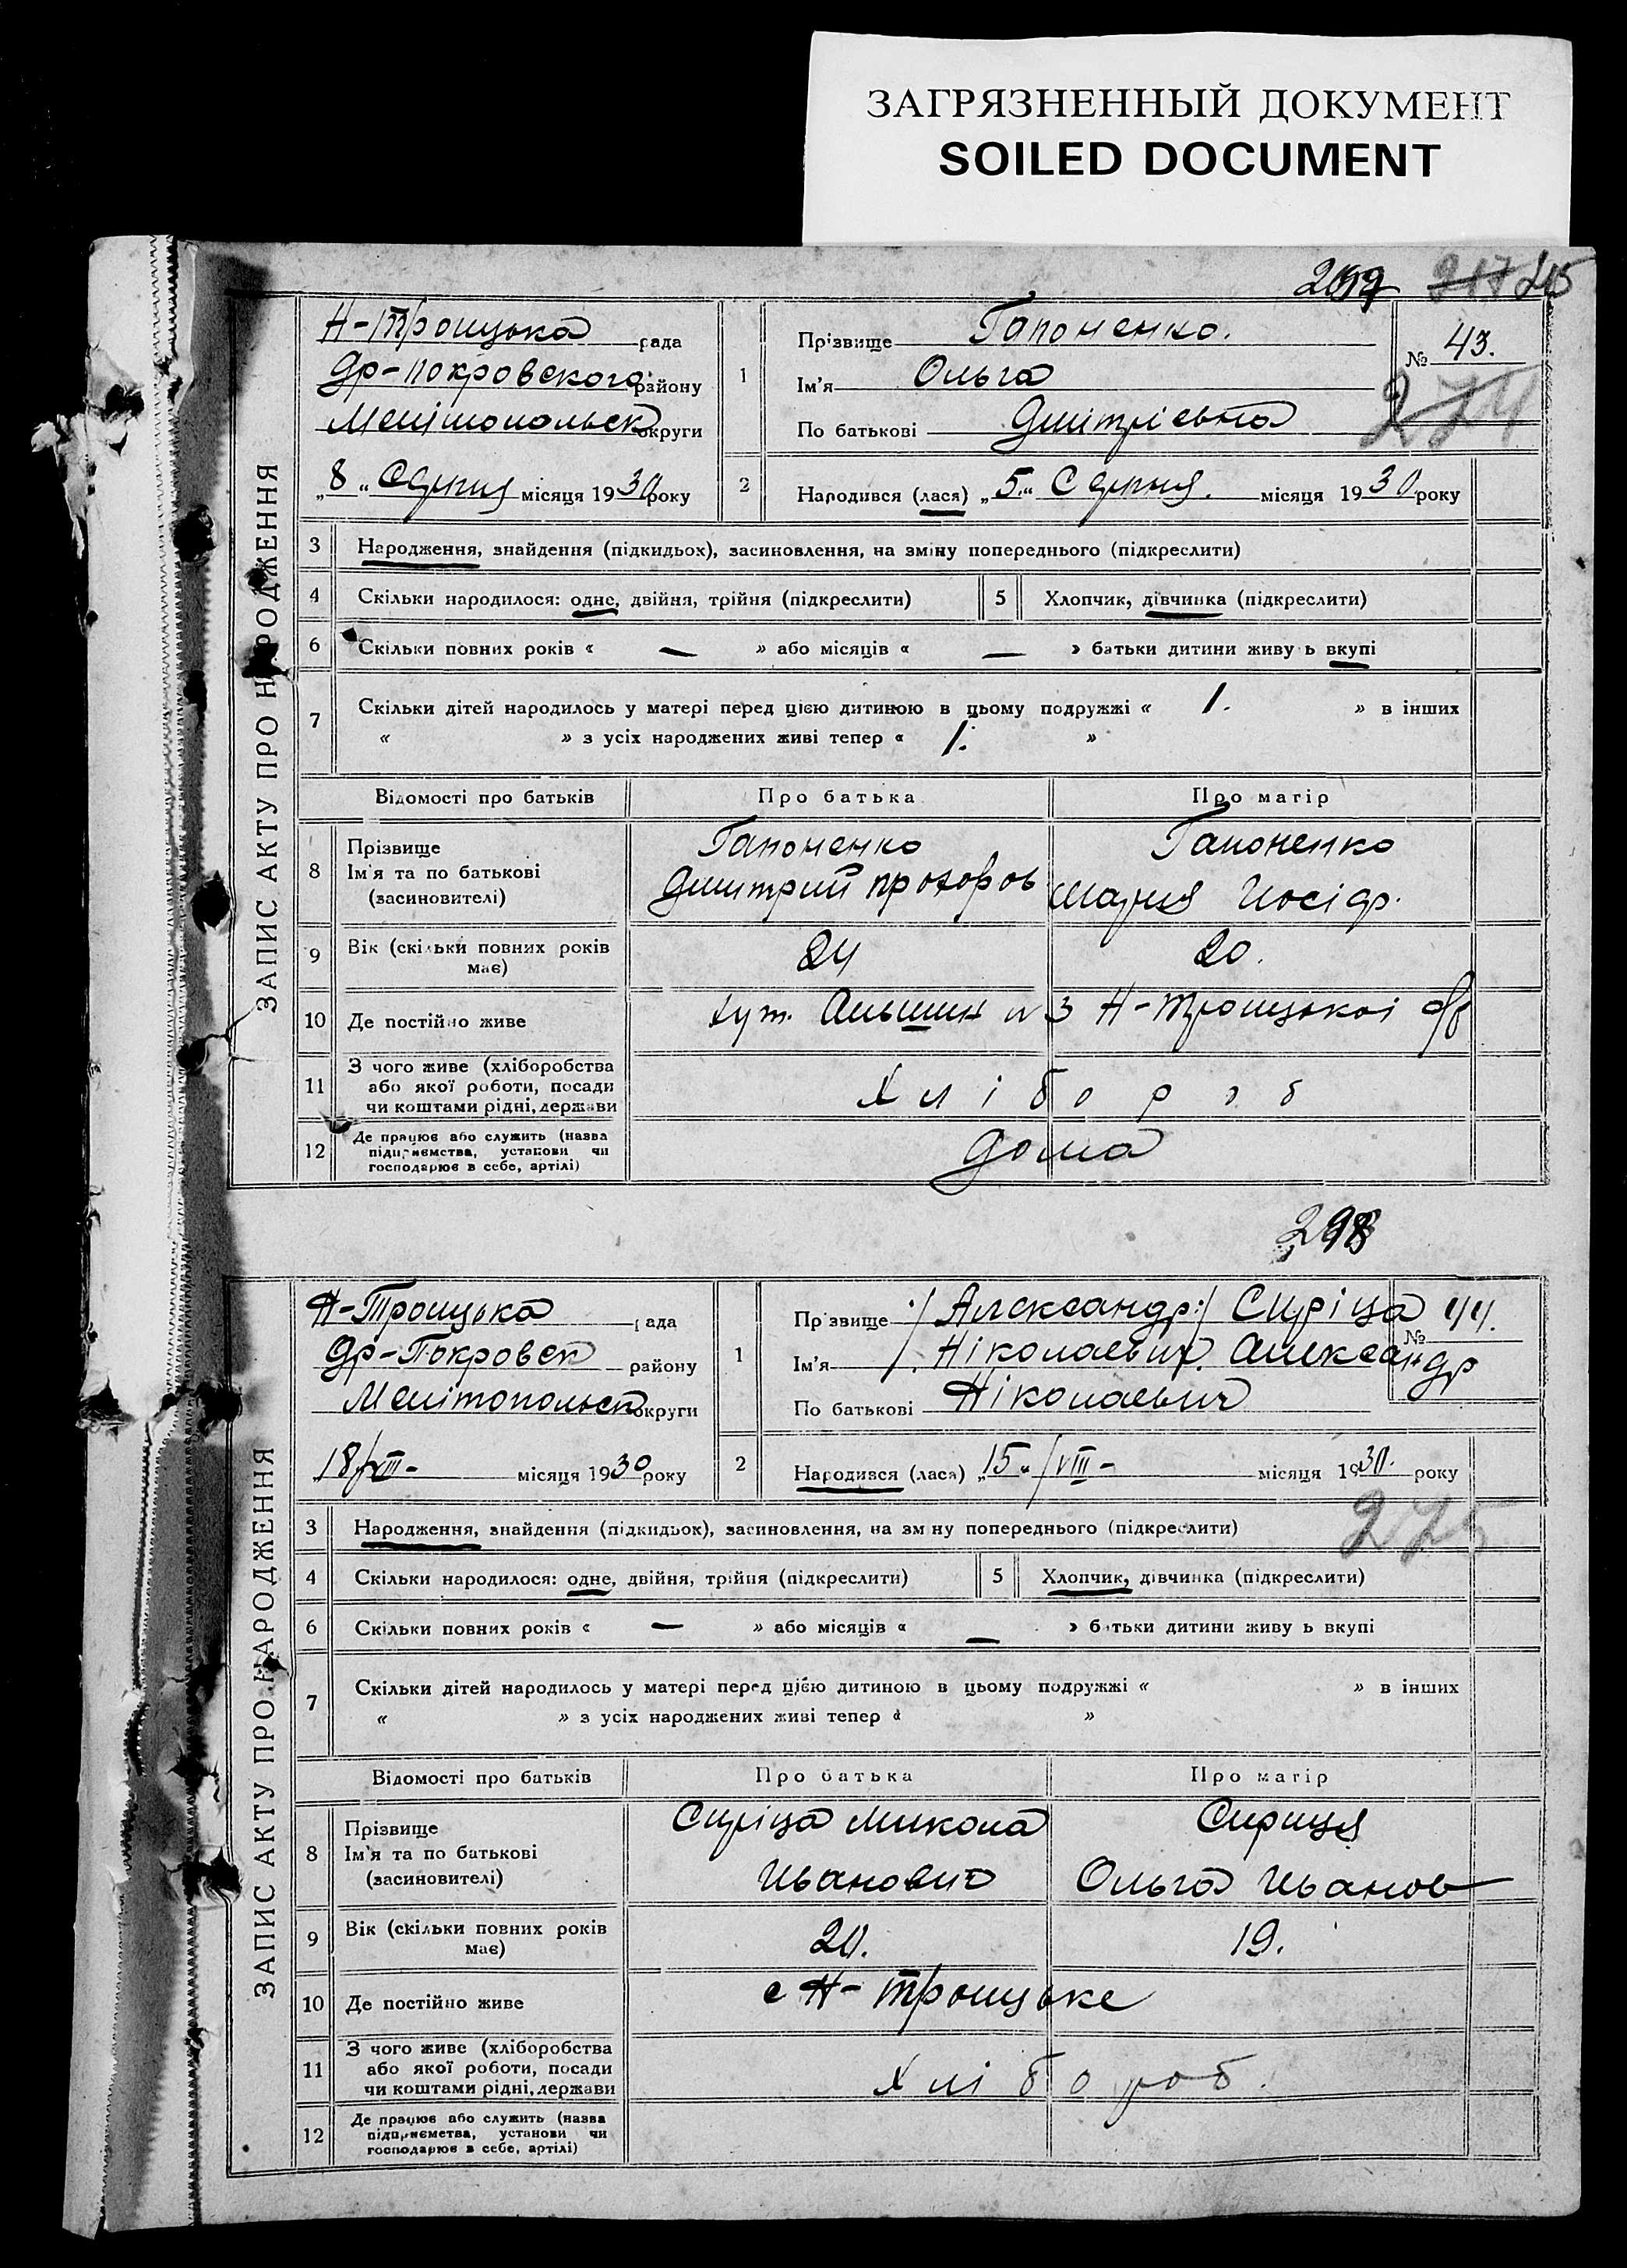 ЗАГРЯЗНЕННЫЙ ДОКУМЕНТ
SOILED DOCUMENT
ЗАПИС АКТУ ПРО НАРОДЖЕННЯ
Н-Троицька рада
Др-Покровского району
Мелітопольск округи
„8“ Серпня місяця 1930 року
1 Прізвище Гапоненко.
Ім'я Ольга
По батькові Дмитрієвна
№ 43.
274
2 Народився (лася) „5.“ Серпня. місяця 1930 року
3 Народження, знайдення (підкидьох), засиновлення, на зміну попереднього (підкреслити)
4 Скільки народилося: одне, двійня, трійня (підкреслити) 5 Хлопчик, дівчинка (підкреслити)
6 Скільки повних років « — » або місяців « — » батьки дитини живу ь вкупі
7 Скільки дітей народилось у матері перед цією дитиною в цьому подружжі « 1. » в інших
« » з усіх народжених живі тепер « 1. »
Відомості про батьків Про батька Про матір
8 Прізвище
Ім'я та по батькові
(засиновителі)
Гапоненко
Дмитрий Прохоров
Гапоненко
Мария Иосіф.
9 Вік (скільки повних років має) 24 20.
10 Де постійно живе хут. №3 Н-Троицькоі с/р
11 З чого живе (хліборобства
або якої роботи, посади
чи коштами рідні, держави
Хлібороб
12 Де працює або служить (назва
підприємства, установи чи
господарює в себе, артілі)
Дома
298
ЗАПИС АКТУ ПРО НАРОДЖЕННЯ
Н-Троицька рада
Др-Покровск району
Мелітопольск округи
18/VIII- місяця 1930 року
1 Прізвище /Александр:/ Сиріца
Ім'я /. Ніколаевич. Александр
По батькові Ніколаевич
№ 44.
2 Народився (лася) „15“/VIII- місяця 1930. року
275
3 Народження, знайдення (підкидьок), засиновлення, на зм ну попереднього (підкреслити)
4 Скільки народилося: одне, двійня, трійня (підкреслити) 5 Хлопчик, дівчинка (підкреслити)
6 Скільки повних років « — » або місяців « — » батьки дитини живу ь вкупі
7 Скільки дітей народилось у матері перед цією дитиною в цьому подружжі « » в інших
« » з усіх народжених живі тепер « »
Відомості про батьків Про батька Про матір
8 Прізвище
Ім'я та по батькові
(засиновителі)
Сиріца Микола
Иванович
Сирица
Ольга Иванов
9 Вік (скільки повних років має) 20. 19.
10 Де постійно живе с Н-Троицьке
11 З чого живе (хліборобства
або якої роботи, посади
чи коштами рідні, держави
Хлібороб.
12 Де працює або служить (назва
підприємства, установи чи
господарює в себе, артілі)